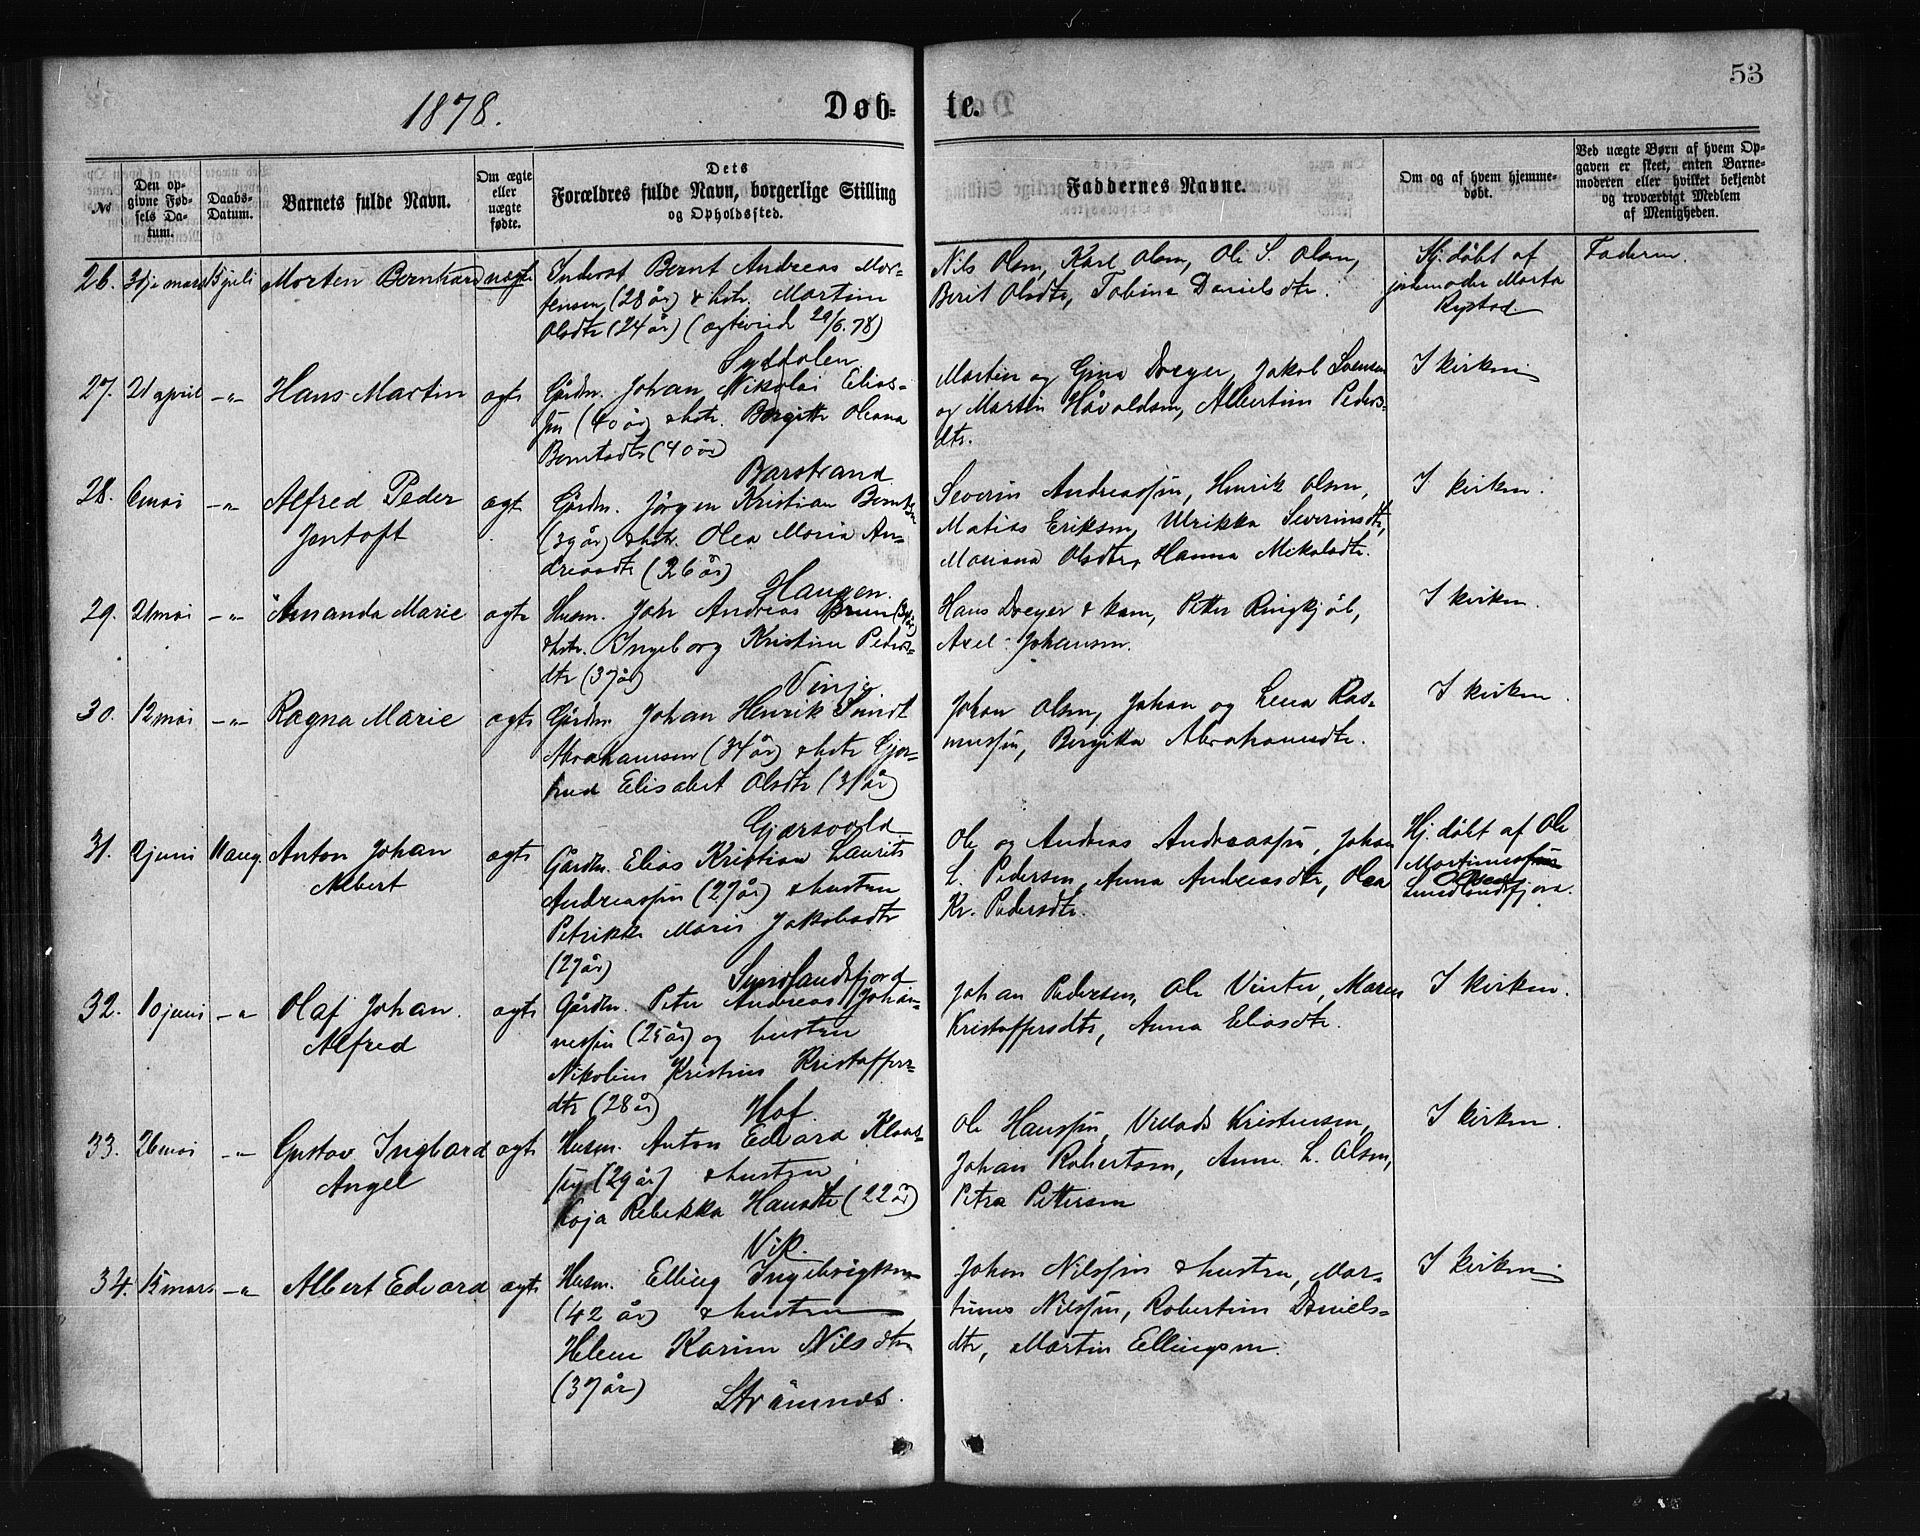 53
1878.
Døb- te.
№
Den op-
givne Fød-
sels Da-
tum.
Daabs-
Datum.
Barnets fulde Navn.
Om ægte
eller
uægte
fødte.
Dets
Forældres fulde Navn, borgerlige Stilling
og Opholdssted.
Faddernes Navne.
Om og af hvem hjemme-
døbt.
Ved uægte Børn af hvem Op-
gaven er skeet, enten Barne-
moderen eller hvilket bekjendt
og troværdigt Medlem
af Menigheden.
26. 31te mars 15 juli Morten Bernhard uægte
Inderst Bernt Andreas Mor-
tensen (28 år) & hstr. Martine
Olsdtr (24 år) (ægteviet 29/6.78)
Syddalen
Nils Olsen, Karl Olsen, Ole S. Olsen,
Berit Olsdtr, Tobine Danielsdtr.
Hj. døbt af
jordemoder Marta
Rystad.
Faderen.
27. 21 april -"- Hans Martin ægte
Gårdm. Johan Nikolai Elias-
sen (40 år) & hstr. Bergitte Oleana
Berntsdtr (40 år)
Barstrand
Martin og Gina Dreyer, Jakob Svensen
og Martin Håvoldsen, Albertine Peders-
dtr.
I kirken
28. 6 mai -"- Alfred Peder
Jentoft
ægte
Gårdm. Jörgen Kristian Berntsen
(39 år) & hstr. Olea Maria An-
dreasdtr (26 år)
Haugen.
Severin Andreassen, Henrik Olsen,
Matias Eriksen, Ulrikka Severinsdtr,
Mariana Olsdtr, Hanna Mikalsdtr.
I kirken.
29. 21 mai -"- Amanda Marie ægte
Husm. Johr Andreas Brun (34 år)
& hstr. Ingeborg Kristine Peders-
dtr (37 år)
Vinje
Hans Dreyer & kone, Petter Ringkjöb,
Axel Johansen.
I kirken.
30. 12 mai -"- Ragna Marie ægte
Gårdm. Johan Henrik Smidt
Abrahamsen (34 år) & hstr Gjer-
trud Elisabet Olsdtr (31 år)
Gjærsvold
Johan Olsen, Johan og Lena Ras-
mussen, Bergitta Abrahamsdtr.
I kirken.
31. 2 juni 11 aug. Anton Johan
Albert
ægte
Gårdm. Elias Kristian Laurits
Andreassen (27 år) & hustru
Petrikke Marie Jakobsdtr
(27 år)
Sundlandsfjord
Ole og Andreas Andreassen, Johan
L. Pedersen, Anna Andreasdtr, Olea
Kr. Pedersdtr.
Hj. døbt af Ole
Martinussen
Olsen
Sundlandsfjord.
32. 10 juni -"- Olaf Johan
Alfred
ægte
Gårdm. Peter Andreas Johan-
nessen (25 år) og hustru
Nikoline Kristine Kristoffers-
dtr (28 år)
Hof.
Johan Pedersen, Ole Vinter, Maren
Kristoffersdtr, Anna Eliasdtr.
I kirken.
33. 26 mai -"- Gustav Ingvard
Angel
ægte
Husm. Anton Edvard Klaus-
sen (29 år) & hustru
Kaja Rebekka Hansdtr (22 år)
Vik.
Ole Hanssen, Villads Kristensen,
Johan Robertsen, Anne L. Olsen,
Petra Pettersen
I kirken.
34. 15 mars -"- Albert Edvard ægte
Husm. Elling Ingebrigtsen
(42 år) & hustru
Helene Karine Nilsdtr
(37 år)
Strömnes.
Johan Nilssen & hustru, Mar-
tinus Nilssen, Robertine Daniels-
dtr, Martin Ellingsen.
I kirken